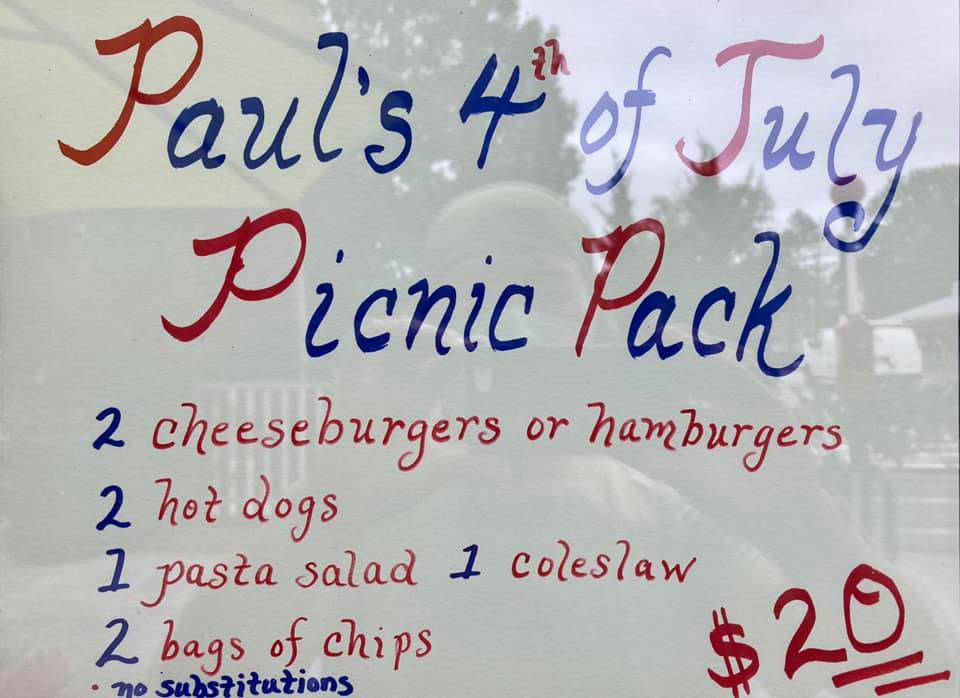 Paul's 4th of July
Picnic Pack
2 cheeseburgers or hamburgers
2 hot dogs
1 pasta salad 1 coleslaw
2 bags of chips
$20
• no substitutions